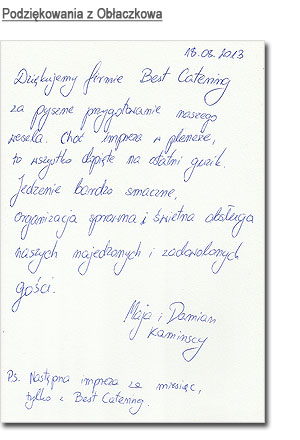 Podziękowania z Obłaczkowa
18.08.2013
Dziękujemy firmie Best Catering
za pyszne przygotowanie naszego
wesela. Choć impreza w plenerze,
to wszystko dopięte na ostatni guzik.
Jedzenie bardzo smaczne,
organizacja sprawna i świetna obsługa
naszych najedzonych i zadowolonych
gości.
Maja i Damian
Kamińscy
Ps. Następna impreza za miesiąc,
tylko z Best Catering.